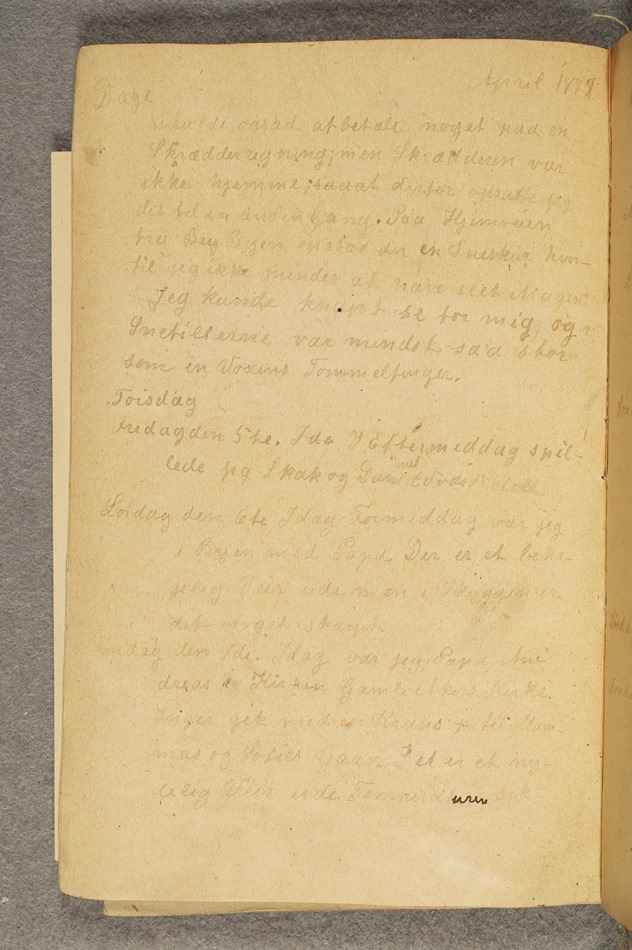 Dage April 1878
skulde ogsaa afbetale noget paa en
Skrædderregning; men Skrædderen var
ikke hjemme, saaat derfor opsatte jeg
det til en anden Gang. Paa Hjemveien
fra Byen opstod der en Sneskur hvor-
til jeg ikke mindes at have seet Magen
Jeg kunde knapt se for mig, og
Snefillerne var mindst saa store
som en Voxens Tommelfinger.
Torsdag
Fredag den 5te. Ida I Eftermiddag spil-
lede jeg Skak og Dam med Edvard
Lørdag den 6te Idag Formiddag var jeg
i Byen med Papa Der er et beha-
jelig Veir ude men i Skyggen er
det noget skarpt.
Søndag den 7de. Idag var jeg, Papa, An-
dreas i Kirken Gamle Akers Kirke.
Inger gik med en Krans til Mam-
mas og Sofies Grav. Det er et ny-
delig Veir ude Temperaturen